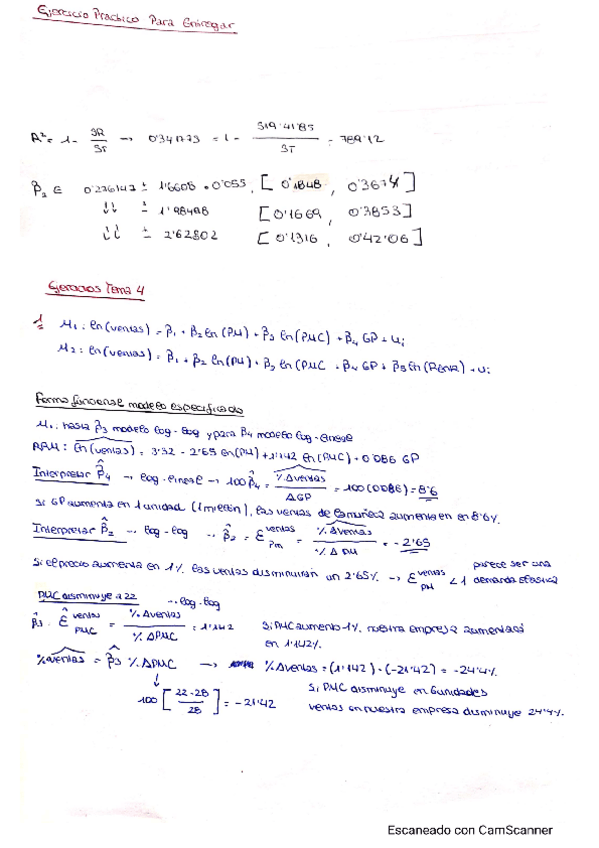 Ejercicio Práctico Para Entregar
R² = 1 - SR/ST → 0'341773 = 1 - 519'41'85/ST = 789'12
β₂ ∈ 0'276147 ± 1'6608 · 0'055, [0'1848, 0'3674]
↓↓ ± 1'98498 [0'1669, 0'3853]
↓↓ ± 2'62802 [0'1316, 0'42'06]
Ejercicios Tema 4
1 M₁: ln(ventas) = β₁ + β₂ ln(PM) + β₃ ln(PMC) + β₄ GP + Ui
M₂: ln(ventas) = β₁ + β₂ ln(PM) + β₃ ln(PMC + β₄ GP + β₅ ln(RENR) + Ui
Forma funcional modelo especificado
M₁: hasta β₃ modelo log-log y para β₄ modelo log-lineal
ln(ventas) = 3'32 - 2'65 ln(PM) + 1'142 ln(PMC) + 0'086 GP
Interpretar β̂₄ → log-lineal → 100 β̂₄ = %Δventas/ΔGP = 100(0'086) = 8'6
Si GP aumenta en 1 unidad (1 millón), las ventas de la muñeca aumenta en en 8'6%
Interpretar β̂₂ → log-log → β̂₂ = Ɛ ventas PM = %Δventas/%ΔPM = -2'65
Si el precio aumenta en 1% las ventas disminuirán un 2'65% → Ɛ ventas PM < 1 parece ser una demanda elástica
PMC disminuye a 22 → log-log
β̂₃ = Ɛ ventas PMC = %Δventas/%ΔPMC = 1'142 Si PMC aumento 1% nuestra empresa aumentará
en 1'142%
%Δventas = β̂₃ %ΔPMC → %Δventas = (1'142) · (-21'42) = -24'4%
↓ Si PMC disminuye en 6 unidades
100 [22-28/28] = -21'42 ventas en nuestra empresa disminuye 24'4%.
Escaneado con CamScanner